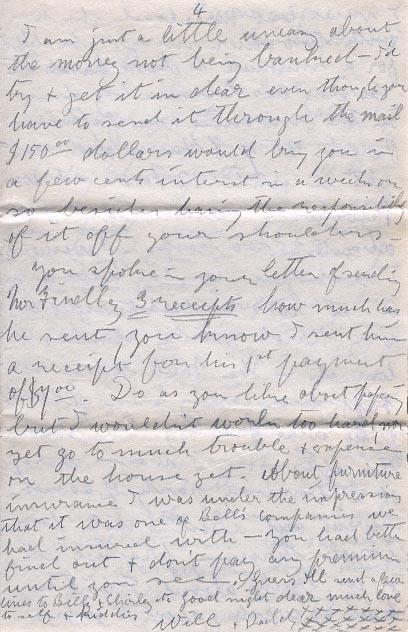 4
I am just a little uneasy about
the money not being banked - I'd
try & get it in dear even though you
have to send it through the mail
$150.00 dollars would bring you in
a few cents interest in a week or
so besides having the responsibility
of it off your shoulders -
You spoke in your letter of sending
Mr Findley 3 receipts how much has
he sent you know I sent him
a receipt for his 1st payment
of $7.00. Do as you like about papering
but I wouldn't work too hard nor
yet go to much trouble & expense
on the house yet. About furniture
insurance I was under the impression
that it was one of Bell's companies we
had insured with - you had better
find out & don't pay any premium
until you see. I guess I'll send a few
lines to Billy & Shirley so good night dear much love
to self & kiddies
Will & Daddy xxxxxxx